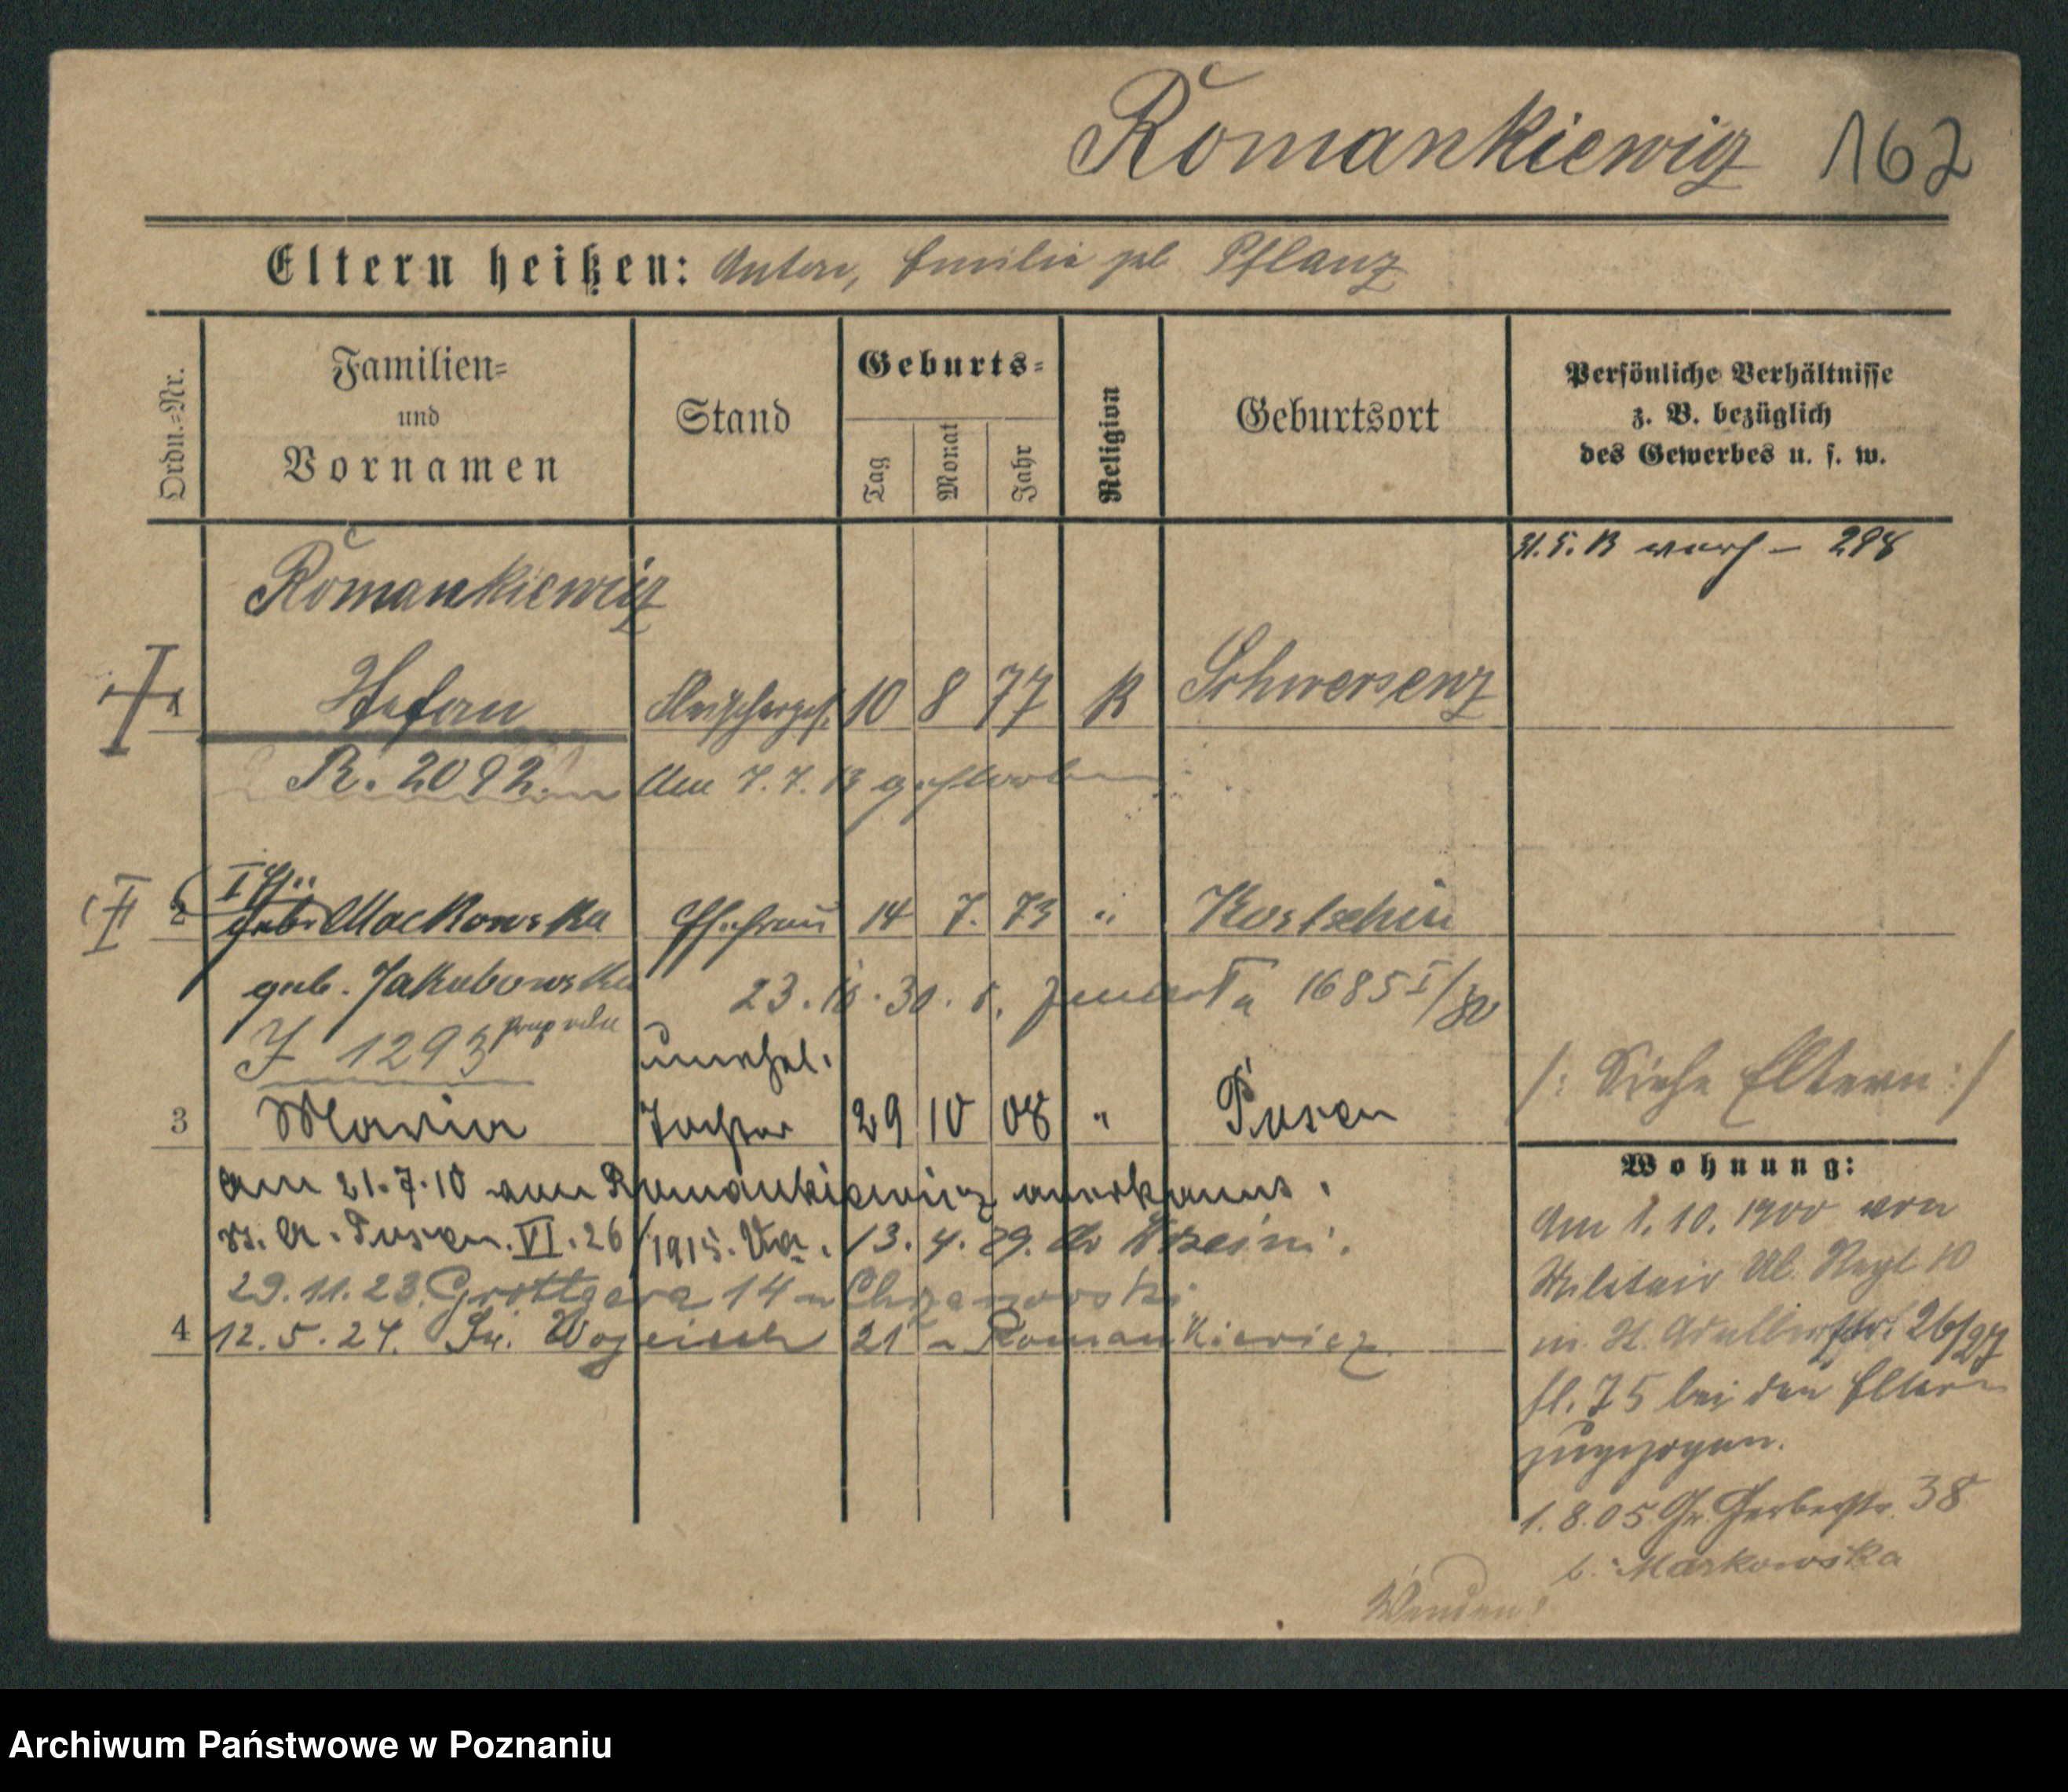 Romankiewicz 162
Eltern heißen: Anton, Emilie geb Pflanz
Ordn.=Nr.
Familien=
und
Vornamen
Stand
Geburts=
Tag
Monat
Jahr
Religion
Geburtsort
Persönliche Verhältnisse
z. B. bezüglich
des Gewerbes u. s. w.
Romankiewicz
1 Stefan Fleischerges. 10 8 77 K Schwersenz
R. 2092. Am 7. 7. 13 gestorben
2 geb. Mackowska Ehefrau 14 7. 73 " Kostschin
geb. Jakubowska
23. 30. 1685 I/30
J 1293
unehel.
/: Siehe Eltern :/
3 Maria Tochter 29 10 08 " Posen
Am 21.7.10 vom Romankiewicz anerkannt.
Posen. VI. 26/1915. Va. 13. 4. 29.
29.11.23. Grottgera 14 Chrzanowski
4 12. 5. 24. Św. Wojciech 21 Romankiewicz
Wohnung:
Am 1. 10. 1900 von
Militair Ul. Regt 10
St. Adalbertstr. 26/27
bei den Eltern
zugezogen.
1. 8. 05 Gr. Gerberstr. 38
b. Markowska
Wenden!
Archiwum Państwowe w Poznaniu